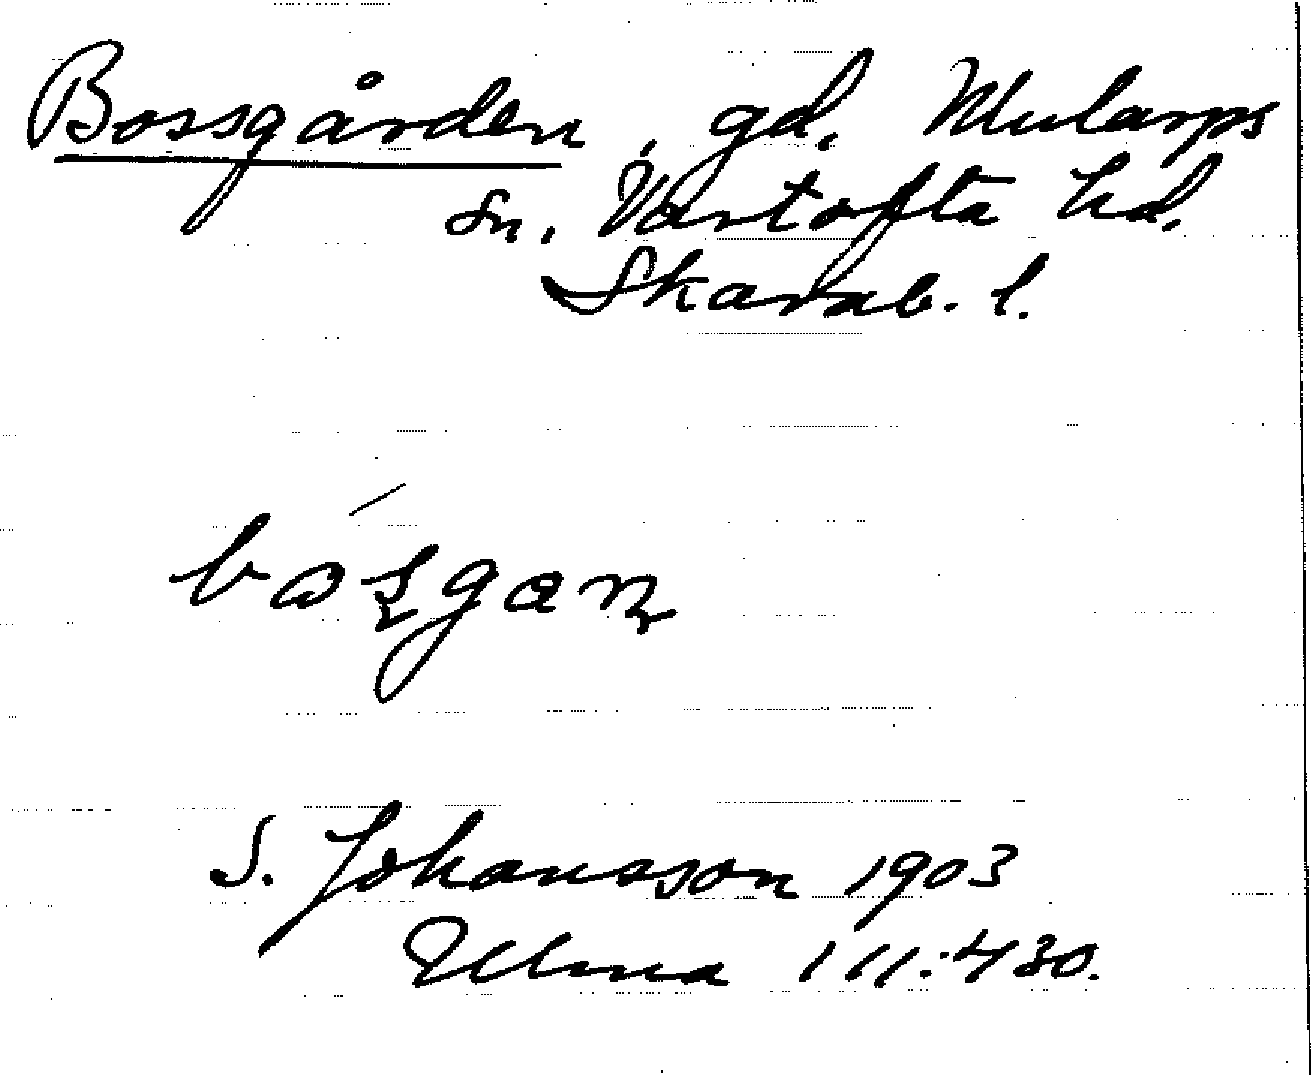 Bossgården, gd. Mularps
sn. Vartofta hd.
Skarab. l.
S. Johansson 1903
Ulma 111:430.